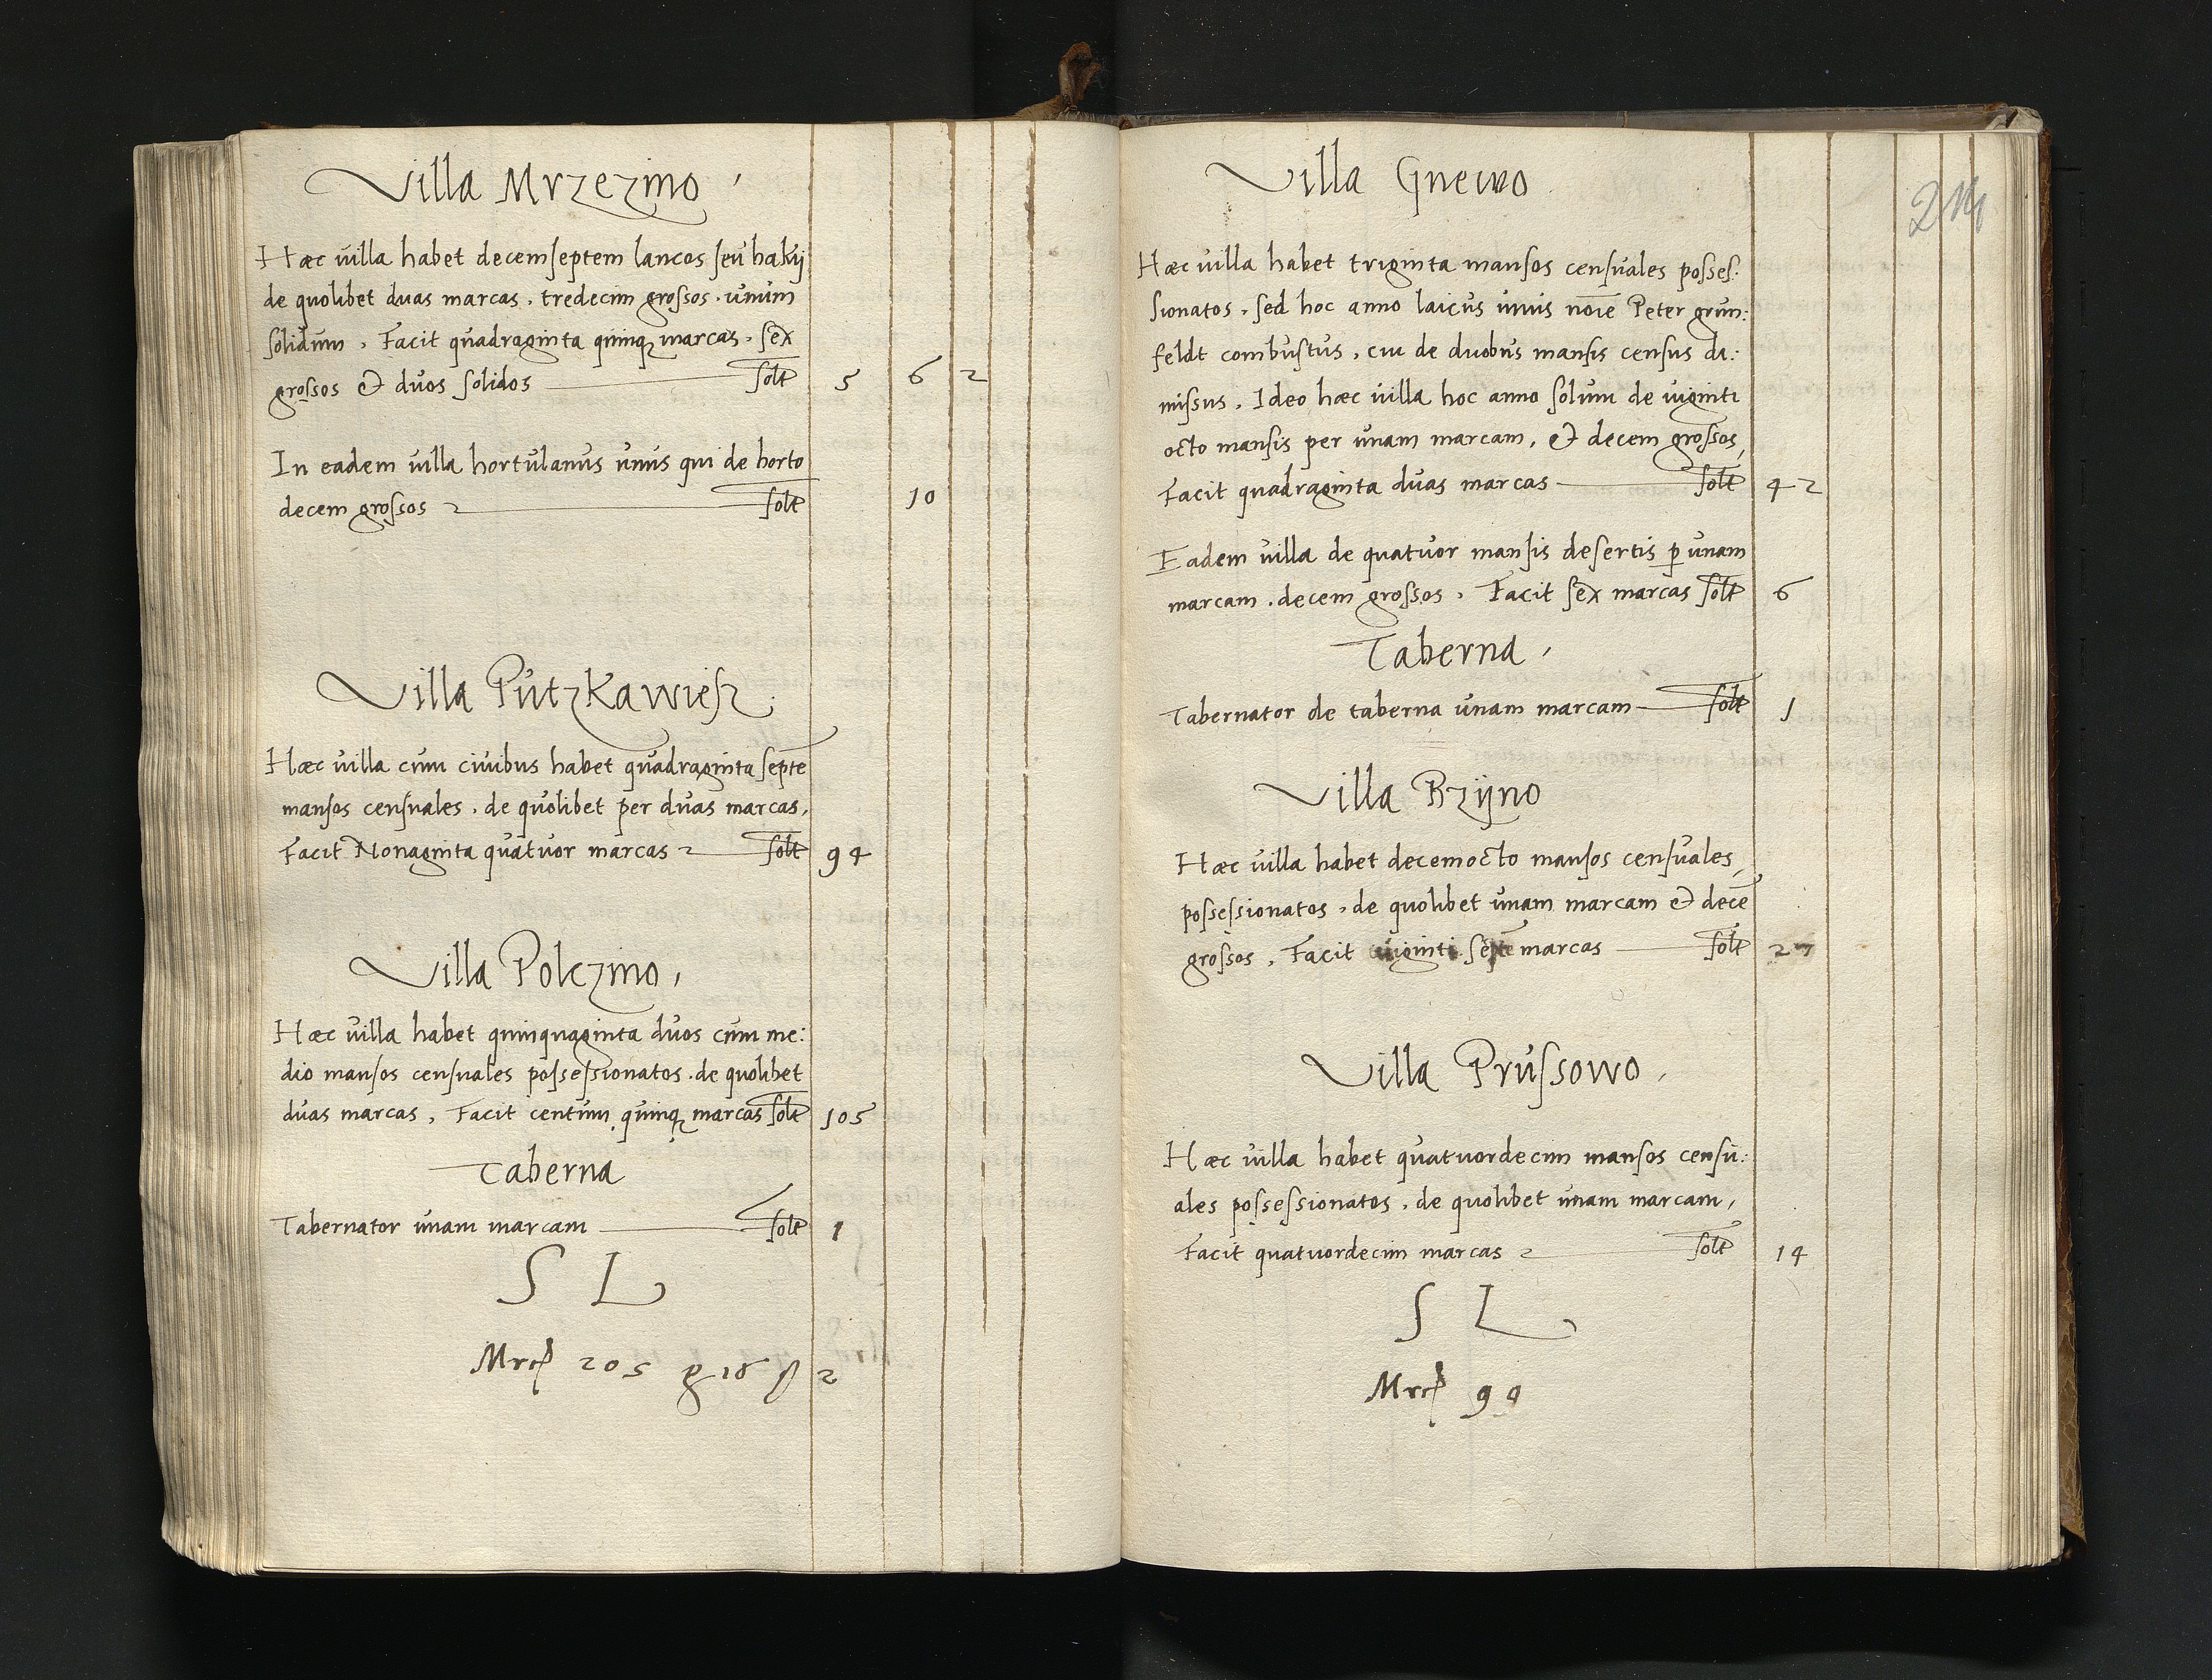 Villa Mrzezino
Hæc uilla habet decemseptem lancos seu hakij
de quolibet duas marcas, tredecim grossos, unum
solidum, Facit quadraginta quinq marcas, sex
grossos et duos solidos solt 5 6 2
In eadem uilla hortulanus unus qui de horto
decem grossos solt 10
Villa Putzkawiesz
Hæc uilla cum ciuibus habet quadraginta septē
mansos censuales, de quolibet per duas marcas,
Facit Nonaginta quatuor marcas solt 94
Villa Polczino,
Hæc uilla habet quinquaginta duos cum me:
dio mansos censuales possessionatos, de quolibet
duas marcas, Facit centum, quinq marcas solt 105
Taberna
Tabernator unam marcam solt 1
S L
Mrc 205 g 16 ß 2
214
Villa Gnewo
Hæc uilla habet triginta mansos censuales posses:
sionatos, sed hoc anno laicus unus noīe Peter grun:
feldt combustus, cui de duobus mansis census di:
missus, Ideo hæc uilla hoc anno solum de uiginti
octo mansis per unam marcam, et decem grossos,
Facit quadraginta duas marcas solt 42
Eadem uilla de quatuor mansis desertis p unam
marcam, decem grossos, Facit sex marcas solt 6
Taberna,
Tabernator de taberna unam marcam solt 1
Villa Rzijno
Hæc uilla habet decemocto mansos censuales,
possessionatos, de quolibet unam marcam et decē
grossos, Facit uiginti marcas solt 27
Villa Prussowo,
Hæc uilla habet quatuordecim mansos censu:
ales possessionatos, de quolibet unam marcam,
Facit quatuordecim marcas solt 14
S L
Mrc 90